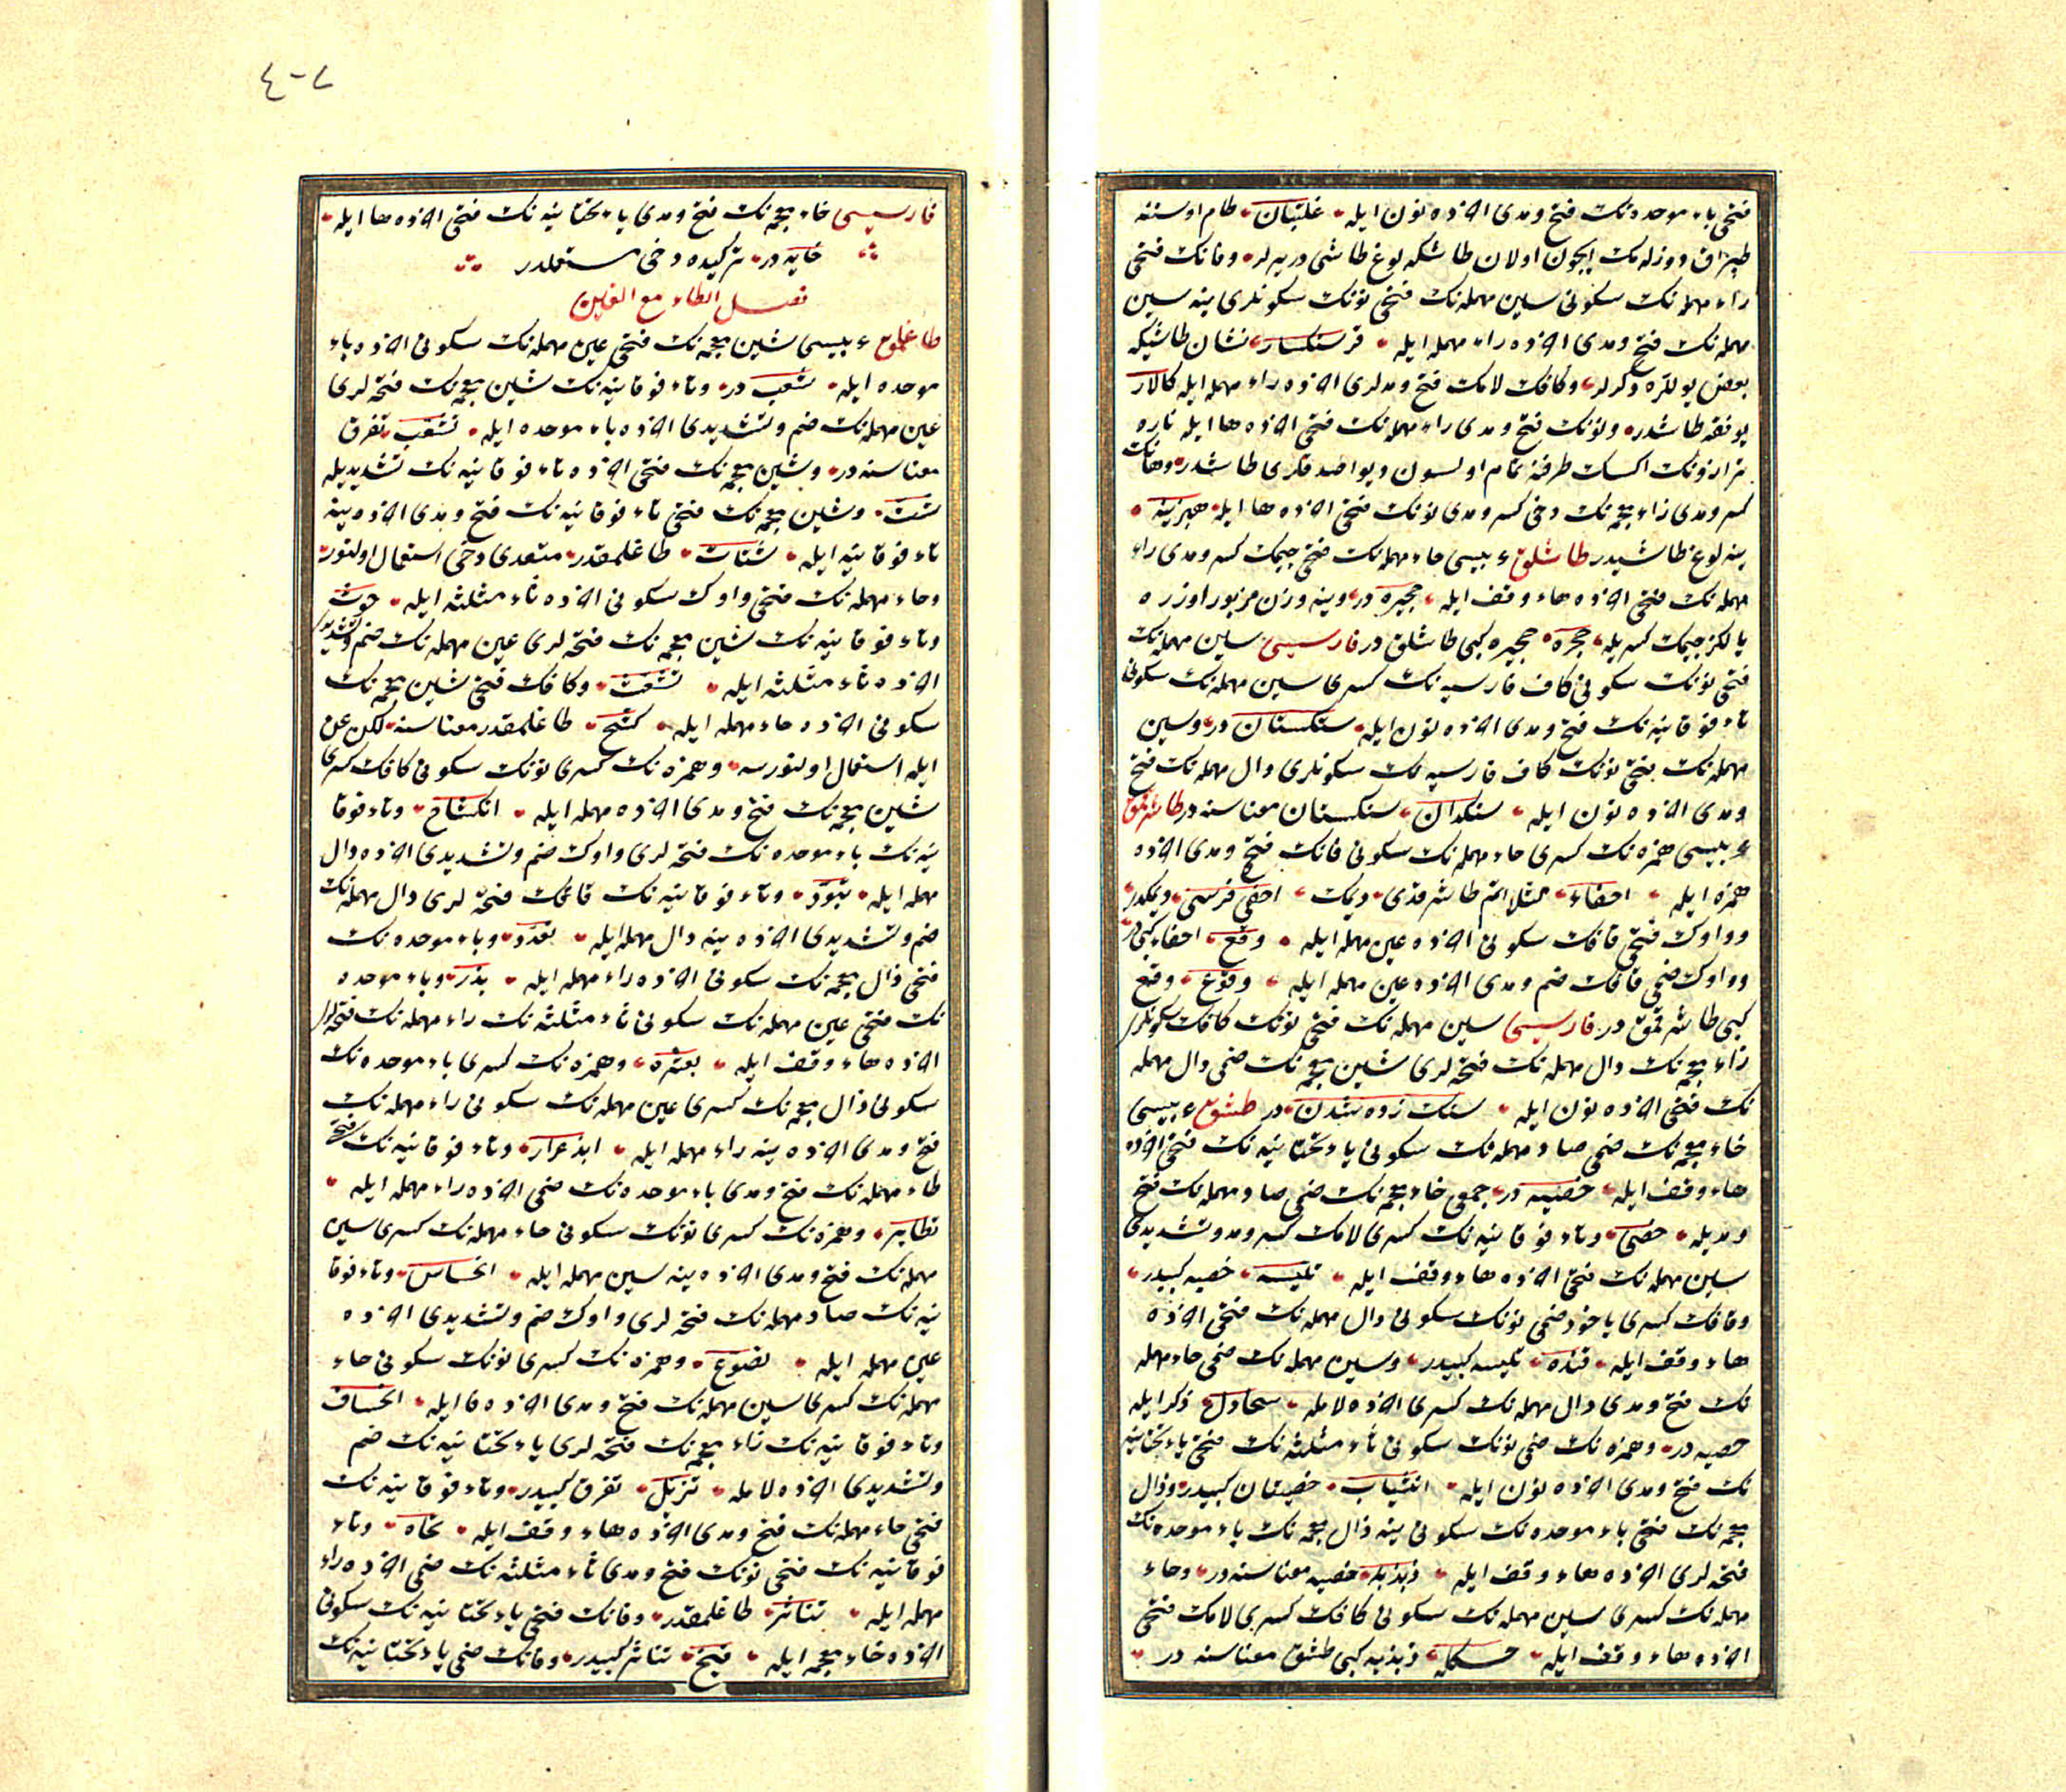 فتحی باء موحده نك فتح و مدی آخرنده نون ایله غلتبان طام اوستنه
طپراق دوزلمك ایچون اولان طاشكه لوغ طاشی دیرلر و فانك فتحی
راء مهمله نك سكونی سین مهمله نك فتحی نونك سكونلری ینه سین
مهمله نك فتح و مدی آخرنده راء مهمله ایله فرسنكسار نشان طاشیكه
بعض یوللرده دیكرلر و كافك لامك فتح و مدلری آخرنده راء مهمله ایله كالار
یوفقه طاشدر و نونك فتح و مدی راء مهمله نك فتحی آخرنده ها ایله ناره
ترازونك اكسك طرفنه تمام اولسون دیو اصدقلری طاشدر و هانك
كسر و مدی زاء معجمه نك دخی كسر و مدی نونك فتحی آخرنده ها ایله هیزینه
ینه لوغ طاشیدر طاشلق عربیسی حاء مهمله نك فتحی جیمك كسر و مدی راء
مهمله نك فتحی آخرنده هاء وقف ایله حجیره در و ینه وزن مزبور اوزره
یالكز جیمك كسریله حجره حجیره كبی طاشلق در فارسیسی سین مهمله نك
فتحی نونك سكونی كاف فارسیه نك كسری سین مهمله نك سكونی
تاء فوقانیه نك فتح و مدی آخرنده نون ایله سنكستان در و سین
مهمله نك فتحی نونك كاف فارسیه نك سكونلری دال مهمله نك فتح
و مدی آخرنده نون ایله سنكدان سنكستان معناسنه در طاشرقمق
عربیسی همزه نك كسری حاء مهمله نك سكونی فانك فتح و مدی آخرنده
همزه ایله احفاء مثلا آتم طاشرقدی دیمك احفی فرسی دیمكدر
و واوك فتحی قافك سكونی آخرنده عین مهمله ایله وقع احفاء كبی در
و واوك ضمی قافك ضم و مدی آخرنده عین مهمله ایله وقوع وقع
كبی طاشرقمق در فارسیسی سین مهمله نك فتحی نونك كافك سكونلری
زاء معجمه نك دال مهمله نك فتحه لری شین معجمه نك ضمی دال مهمله
نك فتحی آخرنده نون ایله سنك زده شدن در طشق عربیسی
خاء معجمه نك ضمی صاد مهمله نك سكونی یاء تحتانیه نك فتحی آخرنده
هاء وقف ایله خصیه در جمعی خاء معجمه نك ضمی صاد مهمله نك فتح
و مدیله خصی و تاء فوقانیه نك كسری لامك كسر و مد و تشدیدی
سین مهمله نك فتحی آخرنده هاء وقف ایله تلیسه خصیه كبیدر
و قافك كسری یاخود ضمی نونك سكونی دال مهمله نك فتحی آخرنده
هاء وقف ایله قنده تلیسه كبیدر و سین مهمله نك ضمی حاء مهمله
نك فتح و مدی دال مهمله نك كسری آخرنده لامله سحادل ذكر ایله
خصیه در و همزه نك ضمی نونك سكونی ثاء مثلثه نك فتحی یاء تحتانیه
نك فتح و مدی آخرنده نون ایله انثیان خصیتان كبیدر و ذال
معجمه نك فتحی باء موحده نك سكونی ینه ذال معجمه نك باء موحده نك
فتحه لری آخرنده هاء وقف ایله ذبذبه خصیه معناسنه در و حاء
مهمله نك كسری سین مهمله نك سكونی كافك كسری لامك فتحی
آخرنده هاء وقف ایله حسكله ذبذبه كبی طشق معناسنه در
٤-٧
فارسیسی خاء معجمه نك فتح و مدی یاء تحتانیه نك فتحی آخرنده ها ایله
خایه در تركیده دخی مستعملدر
فصل الطاء مع الغین
طاغلمق عربیسی شین معجمه نك فتحی عین مهمله نك سكونی آخرنده باء
موحده ایله شعب در و تاء فوقانیه نك شین معجمه نك فتحه لری
عین مهمله نك ضم و تشدیدی آخرنده باء موحده ایله تشعب تفرق
معناسنه در و شین معجمه نك فتحی آخرنده تاء فوقانیه نك تشدیدیله
شت و شین معجمه نك فتحی تاء فوقانیه نك فتح و مدی آخرنده ینه
تاء فوقانیه ایله شتات طاغلمقدر متعدی دخی استعمال اولنور
و حاء مهمله نك فتحی واوك سكونی آخرنده ثاء مثلثه ایله حوث
و تاء فوقانیه نك شین معجمه نك فتحه لری عین مهمله نك ضم و تشدیدی
آخرنده ثاء مثلثه ایله تشعث و كافك فتحی شین معجمه نك
سكونی آخرنده حاء مهمله ایله كشح طاغلمقدر معناسنه لكن عن
ایله استعمال اولنورسه و همزه نك كسری نونك سكونی كافك كسری
شین معجمه نك فتح و مدی آخرنده حاء مهمله ایله انكشاح و تاء فوقا
نیه نك باء موحده نك فتحه لری واوك ضم و تشدیدی آخرنده دال
مهمله ایله تبود و تاء فوقانیه نك قافك فتحه لری دال مهمله نك
ضم و تشدیدی آخرنده ینه دال مهمله ایله تقدد و باء موحده نك
فتحی ذال معجمه نك سكونی آخرنده راء مهمله ایله بذر و باء موحده
نك فتحی عین مهمله نك سكونی ثاء مثلثه نك راء مهمله نك فتحه لری
آخرنده هاء وقف ایله بعثره و همزه نك كسری باء موحده نك
سكونی ذال معجمه نك كسری عین مهمله نك سكونی راء مهمله نك
فتح و مدی آخرنده ینه راء مهمله ایله ابذعرار و تاء فوقانیه نك فتحی
طاء مهمله نك فتح و مدی باء موحده نك ضمی آخرنده راء مهمله ایله
تطایر و همزه نك كسری نونك سكونی حاء مهمله نك كسری سین
مهمله نك فتح و مدی آخرنده ینه سین مهمله ایله انحساس و تاء فوقا
نیه نك صاد مهمله نك فتحه لری واوك ضم و تشدیدی آخرنده
عین مهمله ایله تصوع و همزه نك كسری نونك سكونی حاء
مهمله نك كسری سین مهمله نك فتح و مدی آخرنده فا ایله انحساف
و تاء فوقانیه نك زاء معجمه نك فتحه لری یاء تحتانیه نك ضم
و تشدیدی آخرنده لامله تزیل تفرق كبیدر و تاء فوقانیه نك
فتحی حاء مهمله نك فتح و مدی آخرنده هاء وقف ایله و تاء
فوقانیه نك فتحی نونك فتح و مدی ثاء مثلثه نك ضمی آخرنده راء
مهمله ایله تناثر طاغلمقدر و فانك فتحی یاء تحتانیه نك سكونی
آخرنده خاء معجمه ایله فیخ تناثر كبیدر و فانك ضمی یاء تحتانیه نك